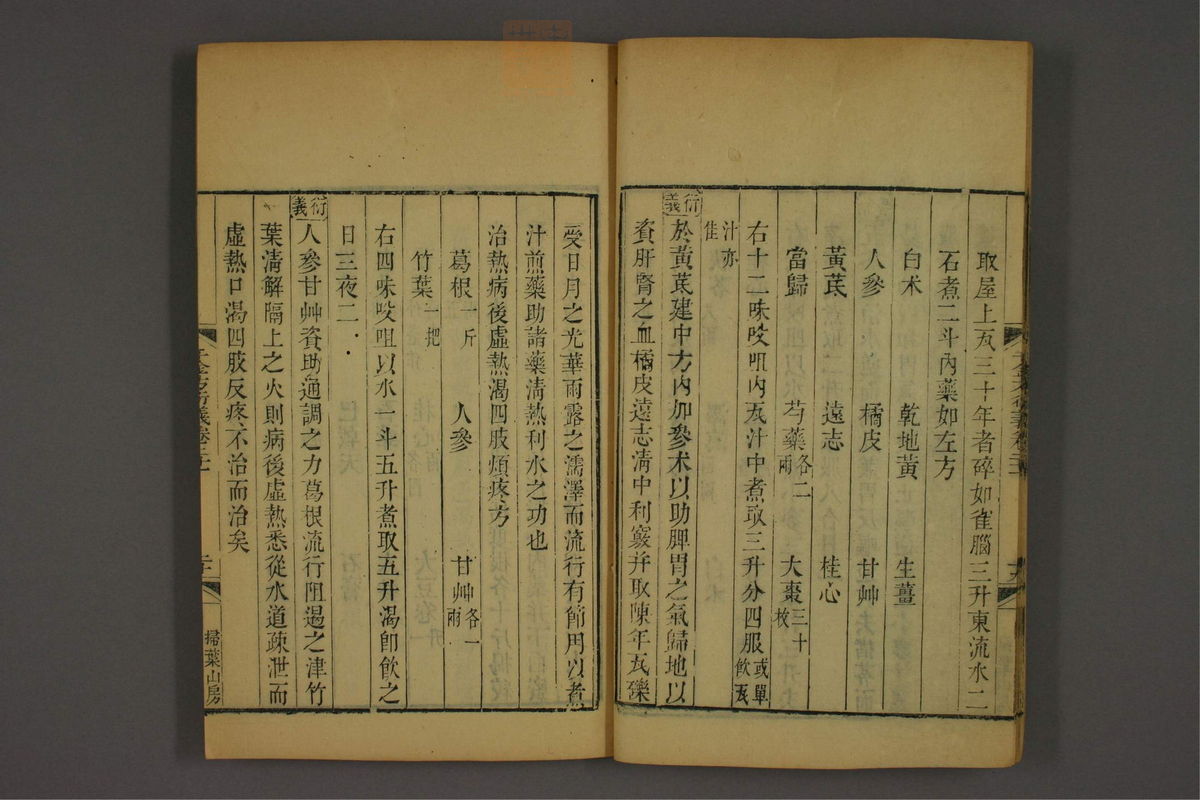 取屋上瓦三十年者碎如雀腦三升東流水二
石煮二斗內藥如左方
白朮　乾地黃　生薑
人參　橘皮　甘艸
黃芪　遠志　桂心
當歸　芍藥各二兩　大棗三十枚
右十二味㕮咀內瓦汁中煮取三升分四服或單飲瓦
汁亦佳
衍義
於黃芪建中方內加參朮以助脾胃之氣歸地以
資肝腎之血橘皮遠志淸中利竅幷取陳年瓦礫
受日月之光華雨露之濡澤而流行有節用以煮
汁煎藥助諸藥淸熱利水之功也
治熱病後虛熱渴四肢煩疼方
葛根一斤　人參　甘艸各一兩
竹葉一把
右四味㕮咀以水一斗五升煮取五升渴卽飲之
日三夜二
衍義
人參甘艸資助通調之力葛根流行阻遏之津竹
葉淸解隔上之火則病後虛熱悉從水道疎泄而
虛熱口渴四肢反疼不治而治矣
掃葉山房